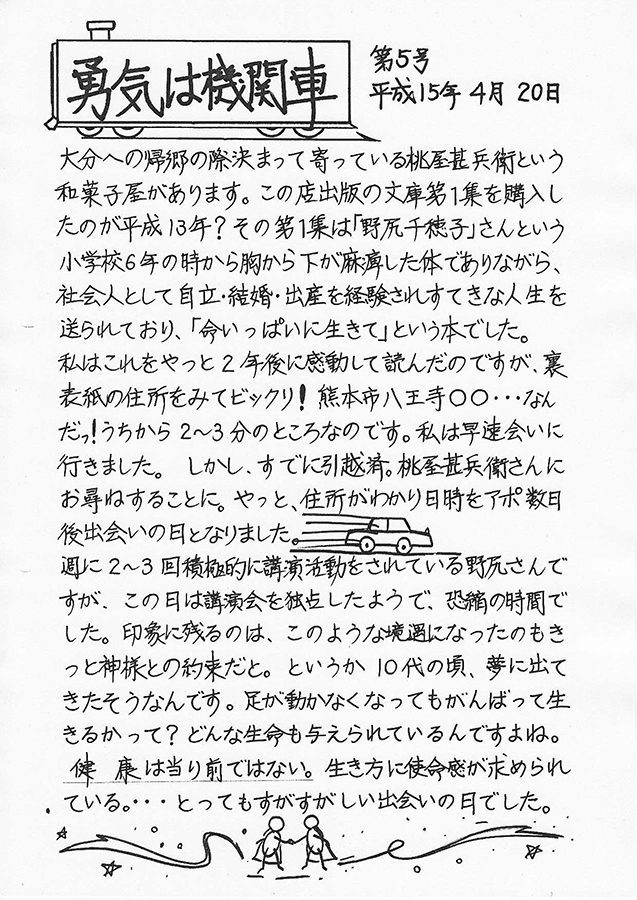 勇気は機関車
第5号
平成15年 4月 20日
大分への帰郷の際決まって寄っている桃屋甚兵衛という
和菓子屋があります。この店出版の文庫第1集を購入し
たのが平成13年？その第1集は「野尻千穂子」さんという
小学校6年の時から胸から下が麻痺した体でありながら、
社会人として自立・結婚・出産を経験されすてきな人生を
送られており、「命いっぱいに生きて」という本でした。
私はこれをやっと2年後に感動して読んだのですが、裏
表紙の住所をみてビックリ！熊本市八王寺〇〇・・・なん
だっ！うちから2〜3分のところなのです。私は早速会いに
行きました。 しかし、すでに引越済。桃屋甚兵衛さんに
お尋ねすることに。やっと、住所がわかり日時をアポ数日
後出会いの日となりました。
週に2〜3回積極的に講演活動をされている野尻さんで
すが、この日は講演会を独占したようで、恐縮の時間で
した。印象に残るのは、このような境遇になったのもき
っと神様との約束だと。というか10代の頃、夢に出て
きたそうなんです。足が動かなくなってもがんばって生
きるかって？どんな生命も与えられているんですよね。
健康は当り前ではない。生き方に使命感が求められ
ている。・・・とってもすがすがしい出会いの日でした。